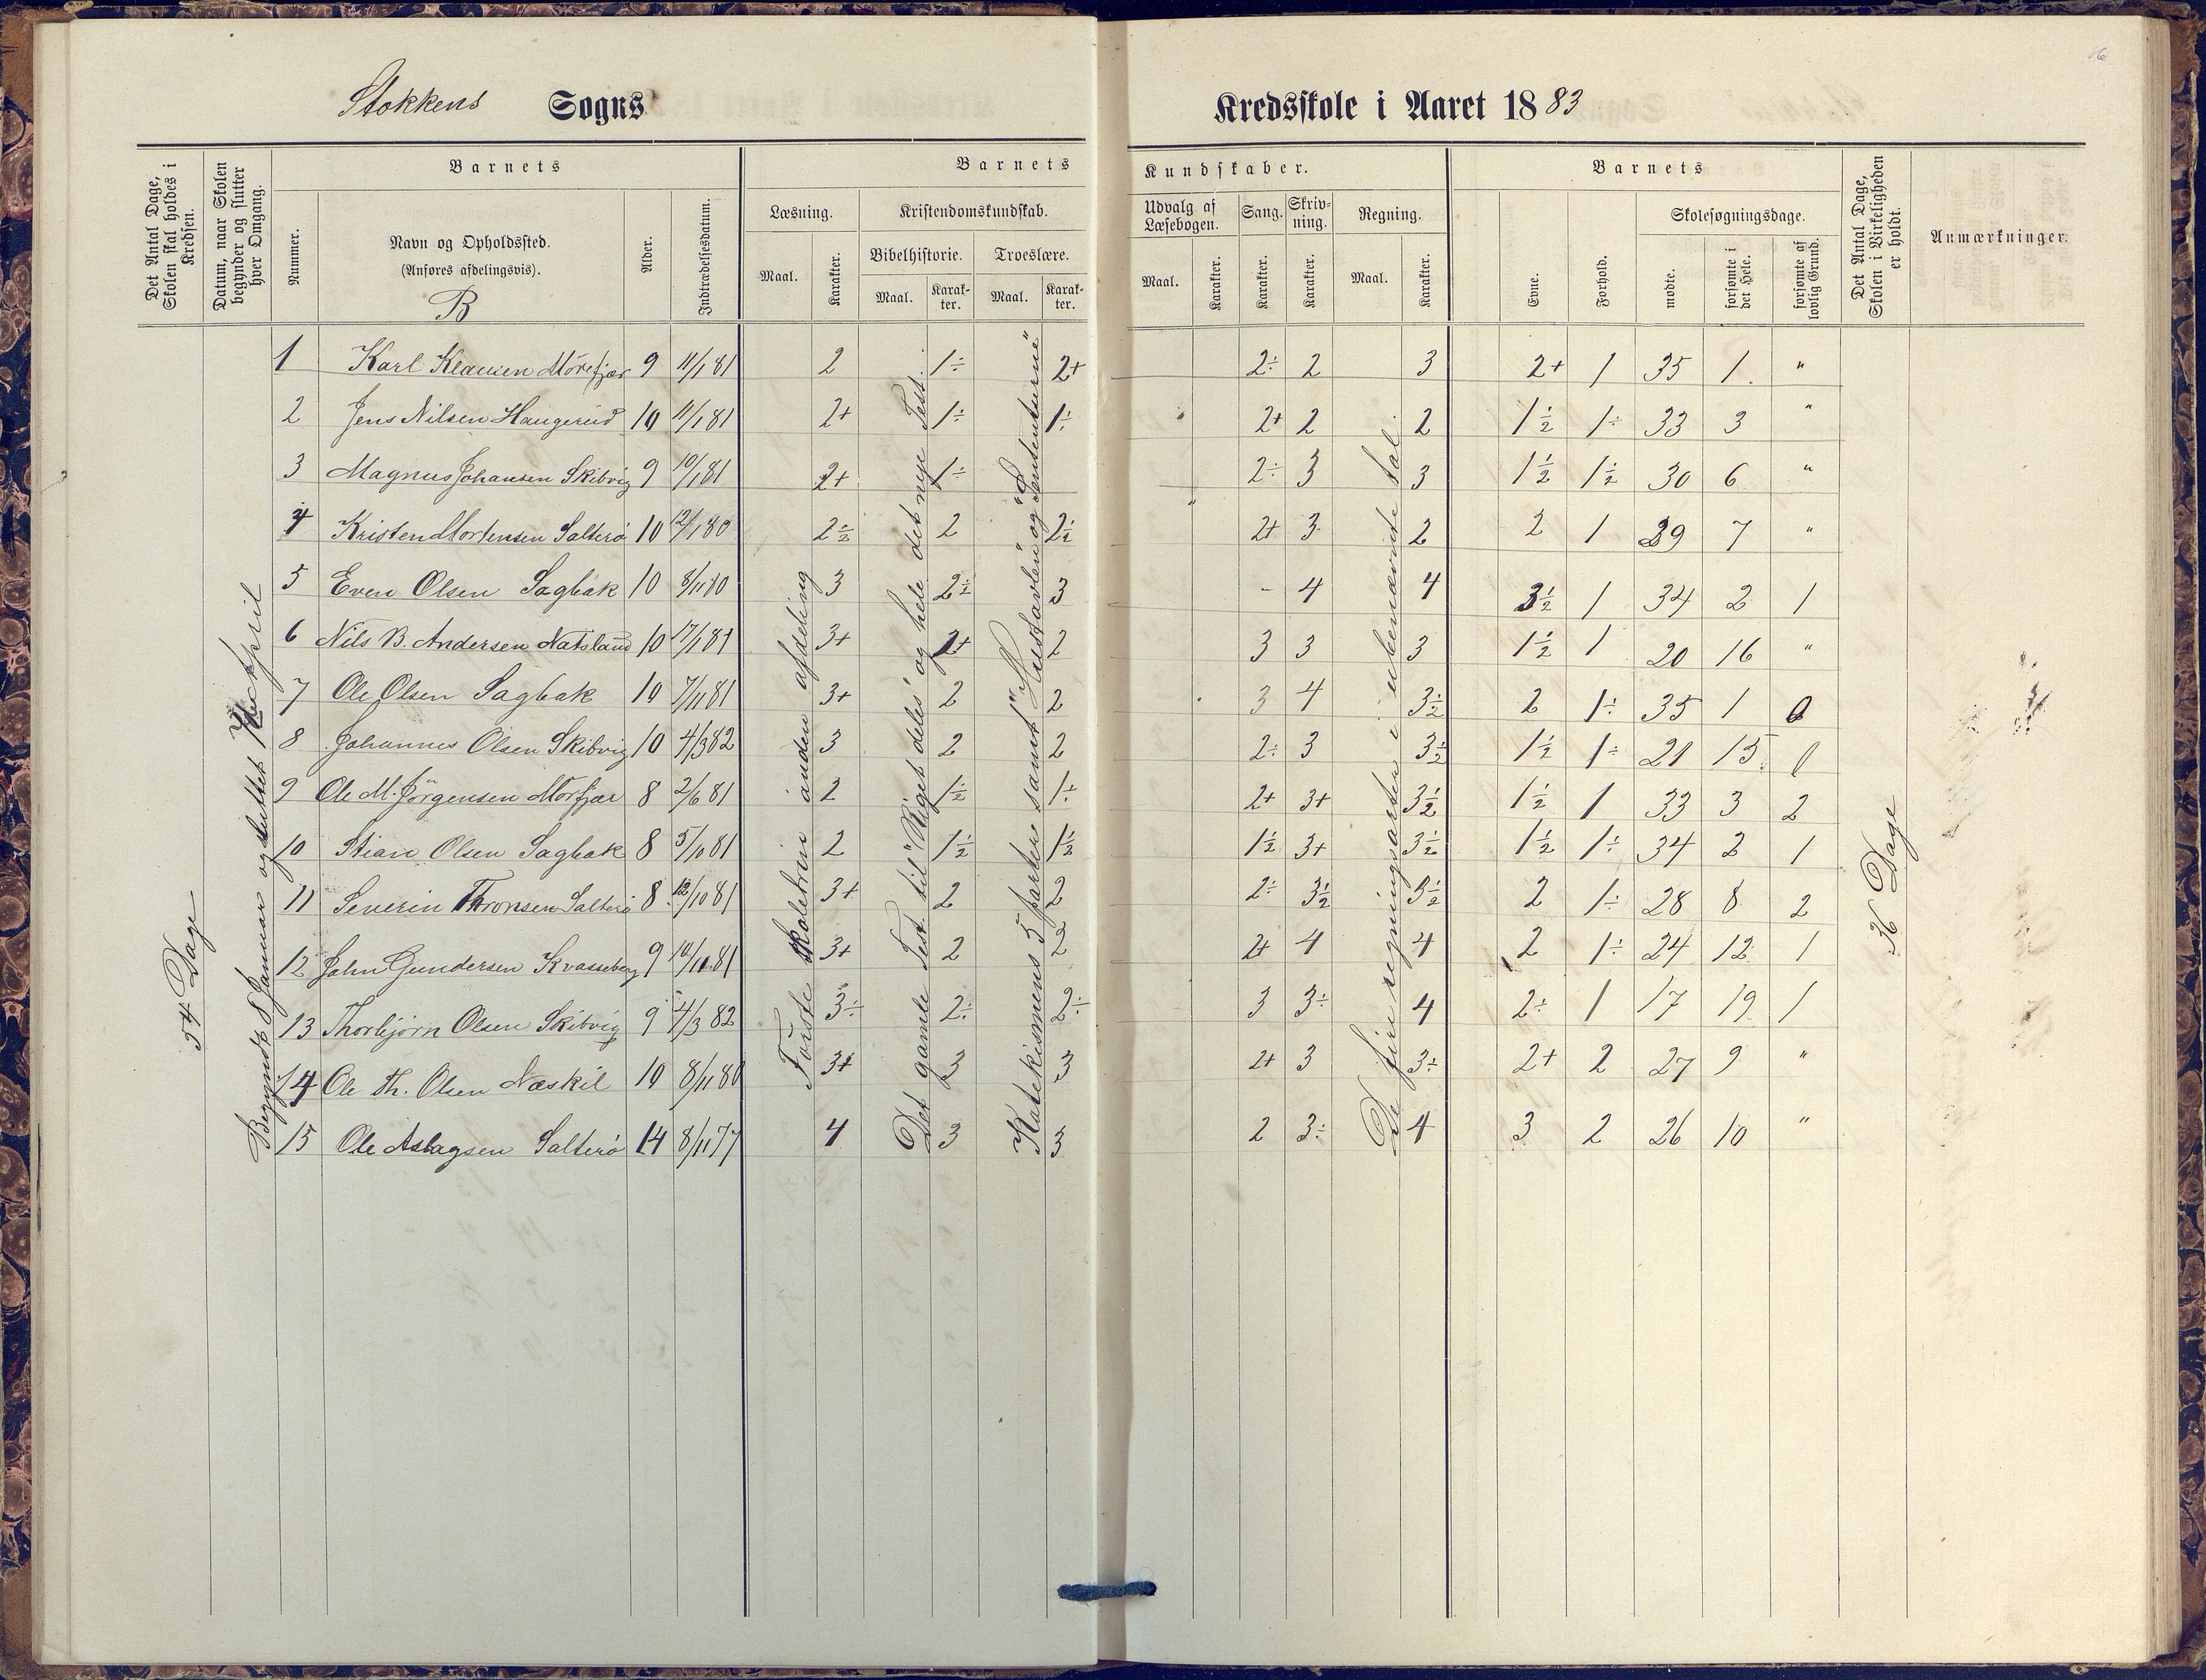 Stokkens Sogns Kredsskole i Aaret 1883
Det Antal Dage, Skolen skal holdes i Kredsen.
Datum, naar Skolen begynder og slutter hver Omgang.
Barnets
Nummer.
Navn og Opholdssted.
(Anføres afdelingsvis).
B
Alder.
Indtrædelsesdatum.
Barnets Kundskaber.
Læsning.
Maal. Karakter.
Kristendomskundskab.
Bibelhistorie. Troeslære.
Maal. Karakter. Maal. Karakter.
Udvalg af Læsebogen.
Maal. Karakter.
Sang. Karakter.
Skrivning. Karakter.
Regning.
Maal. Karakter.
Barnets
Evne. Forhold.
Skolesøgningsdage.
mødte. forsømte i det Hele. forsømte af lovlig Grund.
Det Antal Dage, Skolen i Virkeligheden er holdt.
Anmærkninger.
54 Dage
Begyndt 8 Januar og sluttet April
Første Skoletrin anden afdeling
Det gamle Test. til "Riget deles" og hele det nye Test.
Katekismens 5 parter samt "Hustavlen" og
De fire regningsarter i ubenævnte tal.
36 Dage
1 Karl Klausen Mörefjær 9 11/1 81 2 1÷ 2+ 2÷ 2 3 2+ 1 35 1 "
2 Jens Nilsen Haugerud 10 11/1 81 2+ 1÷ 1÷ 2+ 2 2 1½ 1÷ 33 3 "
3 Magnus Johansen Skibvig 9 10/1 81 2+ 1÷ 2÷ 3 3 1½ 1½ 30 6 "
4 Kristen Mortensen Salterö 10 12/1 80 2½ 2 2½ 2+ 3 2 2 1 29 7 "
5 Even Olsen Sagbak 10 8/11 80 3 2½ 3 - 4 4 3½ 1 34 2 1
6 Nils B. Andersen Natsland 10 17/1 81 3+ 2+ 2 3 3 3 1½ 1 20 16 "
7 Ole Olsen Sagbak 10 7/11 81 3+ 2 2 3 4 3½ 2 1÷ 35 1 0
8 Johannes Olsen Skibvig 10 4/3 82 3 2 2 2÷ 3 3½ 1½ 1÷ 21 15 0
9 Ole M. Jörgensen Mörfjær 8 2/6 81 2 1½ 1÷ 2+ 3+ 3½ 1½ 1 33 3 2
10 Stian Olsen Sagbak 8 5/10 81 2 1½ 1½ 1½ 3+ 3½ 1½ 1÷ 34 2 1
11 Severin Thronsen Salterö 8 12/10 81 3+ 2 2 2÷ 3½ 3½ 2 1÷ 28 8 2
12 John Gundersen Kvasseberg 9 10/11 81 3+ 2 2 2+ 4 4 2 1÷ 24 12 1
13 Thorbjörn Olsen Skibvig 9 4/3 82 3÷ 2÷ 2÷ 3 3÷ 4 2÷ 1 17 19 1
14 Ole Th. Olsen Næskil 10 8/11 80 3+ 3 3 2+ 3 3÷ 2+ 2 27 9 "
15 Ole Aslagsen Salterö 14 8/11 77 4 3 3 2 3÷ 4 3 2 26 10 "